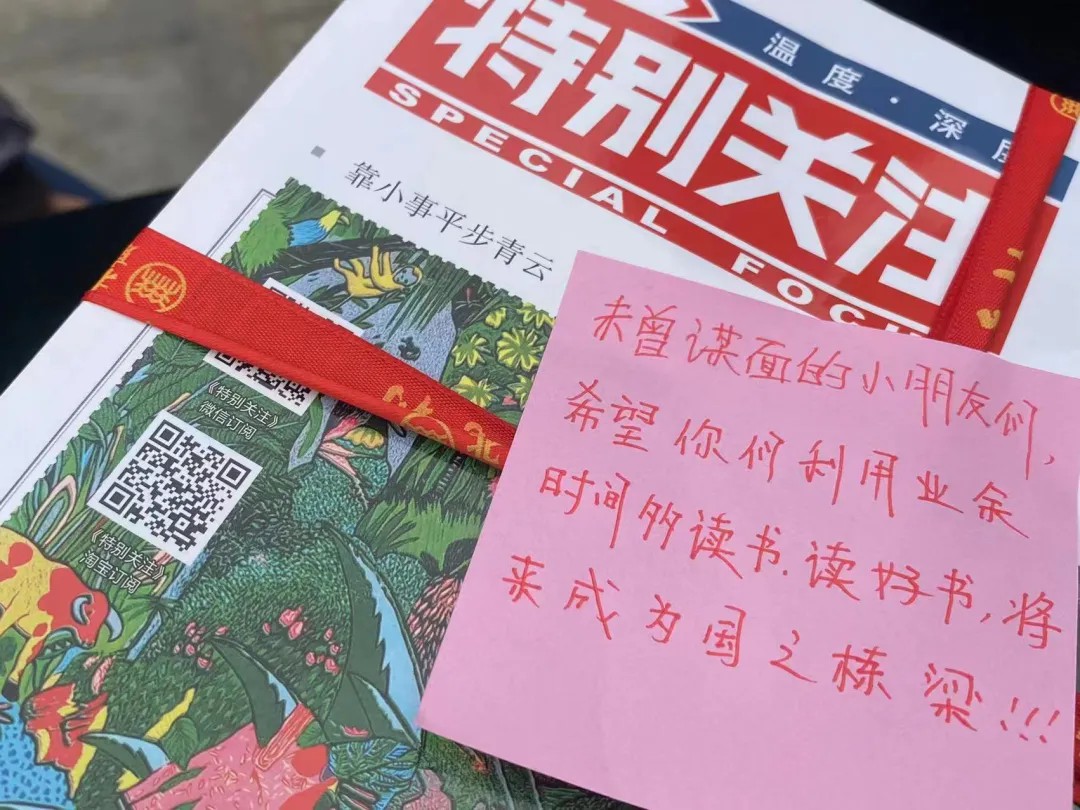 温度·深度
特别关注
SPECIAL FOCU
靠小事平步青云
《特别关注》
微信订阅
《特别关注》
淘宝订阅
未曾谋面的小朋友们,
希望你们利用业余
时间多读书.读好书,将
来成为国之栋梁!!!